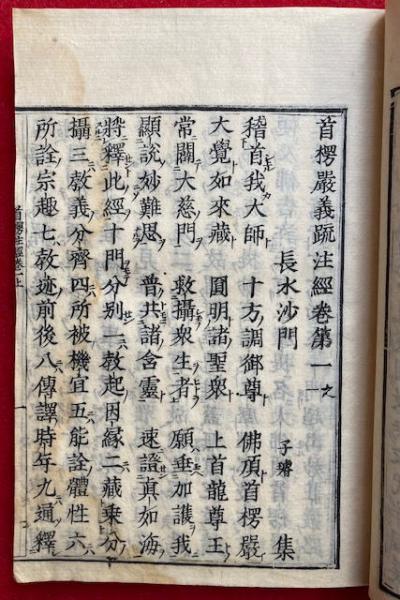 首楞嚴義疏注經卷第一之一
長水沙門 子璿 集
稽首我大師 十方調御尊 佛頂首楞嚴
大覺如來藏 圓明諸聖衆 上首龍尊王
常闢大慈門 救攝衆生者 願垂加護我
顯說妙難思 普共諸含靈 速證真如海
將釋此經十門分別一教起因緣二藏乘分
攝三教義分齊四所被機宜五能詮體性六
所詮宗趣七教迹前後八傳譯時年九通釋
首楞注經卷一上